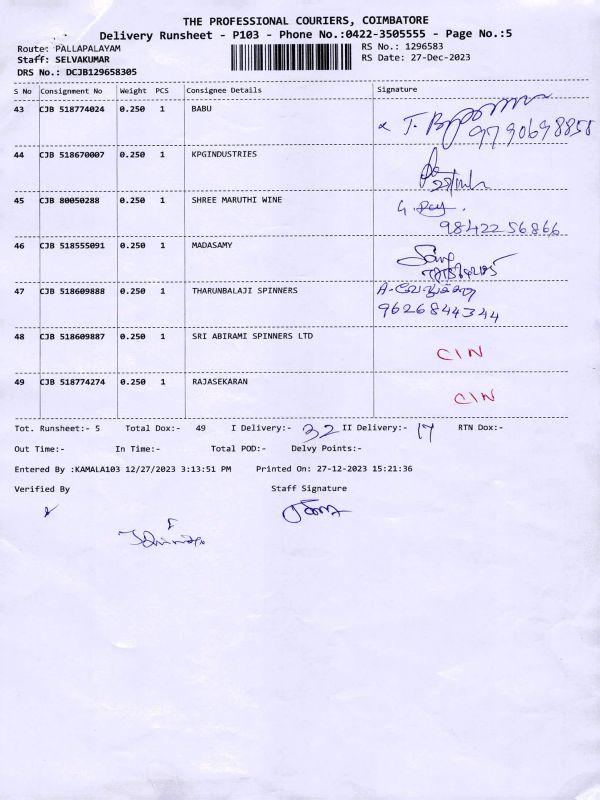 THE PROFESSIONAL COURIERS, COIMBATORE
Delivery Runsheet - P103 - Phone No.:0422-3505555 - Page No.:5
Route: PALLAPALAYAM
RS No.: 1296583
Staff: SELVAKUMAR
RS Date: 27-Dec-2023
DRS No.: DCJB129658305
S No Consignment No Weight PCS Consignee Details Signature
43 CJB 518774024 0.250 1 BABU
9790698858
44 CJB 518670007 0.250 1 KPGINDUSTRIES
45 CJB 80050288 0.250 1 SHREE MARUTHI WINE
9842256866
46 CJB 518555091 0.250 1 MADASAMY
47 CJB 518609888 0.250 1 THARUNBALAJI SPINNERS
9626844344
48 CJB 518609887 0.250 1 SRI ABIRAMI SPINNERS LTD CIN
49 CJB 518774274 0.250 1 RAJASEKARAN CIN
Tot. Runsheet:- 5 Total Dox:- 49 I Delivery:- 32 II Delivery:- 17 RTN Dox:-
Out Time:- In Time:- Total POD:- Delvy Points:-
Entered By :KAMALA103 12/27/2023 3:13:51 PM Printed On: 27-12-2023 15:21:36
Verified By Staff Signature